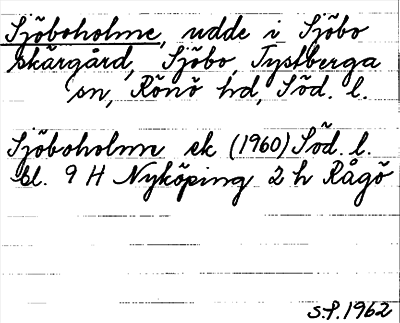 Sjöboholme, udde i Sjöbo
skärgård, Sjöbo, Tystberga
sn, Rönö hd, Söd. l.
Sjöboholm ek (1960) Söd. l.
bl. 9 H Nyköping 2 h Rågö
S.P. 1962